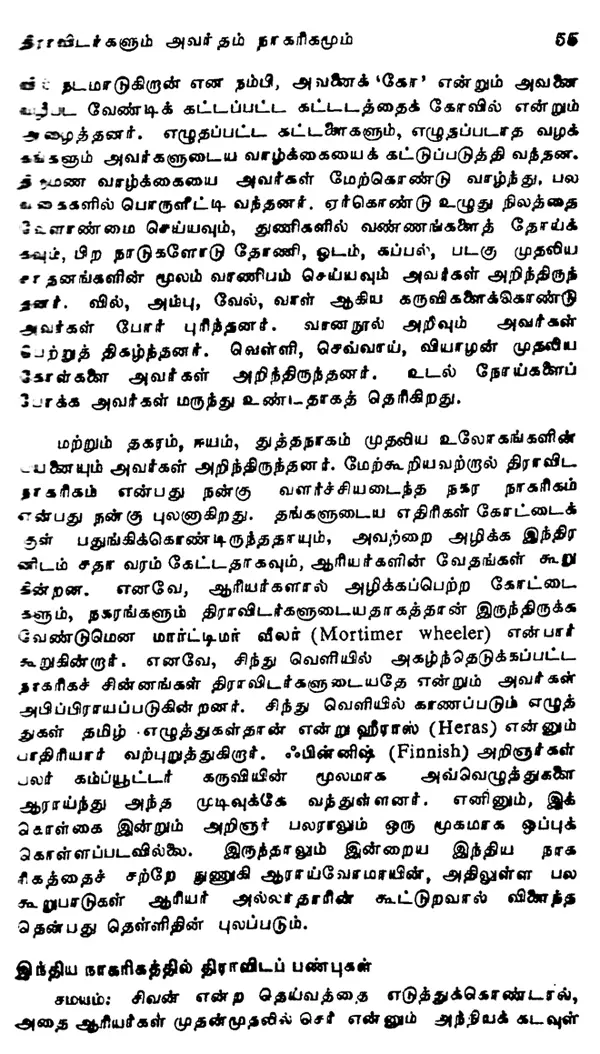 திராவிடர்களும் அவர்தம் நாகரிகமும் 55
நடமாடுகிறான் என நம்பி, அவனைக் 'கோ' என்றும் அவனை
வழிபட வேண்டிக் கட்டப்பட்ட கட்டடத்தைக் கோவில் என்றும்
அழைத்தனர். எழுதப்பட்ட கட்டளைகளும், எழுதப்படாத வழக்
கங்களும் அவர்களுடைய வாழ்க்கையைக் கட்டுப்படுத்தி வந்தன.
திருமண வாழ்க்கையை அவர்கள் மேற்கொண்டு வாழ்ந்து, பல
வகைகளில் பொருளீட்டி வந்தனர். ஏர்கொண்டு உழுது நிலத்தை
வேளாண்மை செய்யவும், துணிகளில் வண்ணங்களைத் தோய்க்
கவும், பிற நாடுகளோடு தோணி, ஓடம், கப்பல், படகு முதலிய
சாதனங்களின் மூலம் வாணிபம் செய்யவும் அவர்கள் அறிந்திருந்
தனர். வில், அம்பு, வேல், வாள் ஆகிய கருவிகளைக்கொண்டு
அவர்கள் போர் புரிந்தனர். வானநூல் அறிவும் அவர்கள்
பெற்றுத் திகழ்ந்தனர். வெள்ளி, செவ்வாய், வியாழன் முதலிய
கோள்களை அவர்கள் அறிந்திருந்தனர். உடல் நோய்களைப்
போக்க அவர்கள் மருந்து உண்டதாகத் தெரிகிறது.
மற்றும் தகரம், ஈயம், துத்தநாகம் முதலிய உலோகங்களின்
பயனையும் அவர்கள் அறிந்திருந்தனர். மேற்கூறியவற்றால் திராவிட
நாகரிகம் என்பது நன்கு வளர்ச்சியடைந்த நகர நாகரிகம்
என்பது நன்கு புலனாகிறது. தங்களுடைய எதிரிகள் கோட்டைக்
குள் பதுங்கிக்கொண்டிருந்ததாயும், அவற்றை அழிக்க இந்திர
னிடம் சதா வரம் கேட்டதாகவும், ஆரியர்களின் வேதங்கள் கூறு
கின்றன. எனவே, ஆரியர்களால் அழிக்கப்பெற்ற கோட்டை
களும், நகரங்களும் திராவிடர்களுடையதாகத்தான் இருந்திருக்க
வேண்டுமென மார்ட்டிமர் வீலர் (Mortimer wheeler) என்பார்
கூறுகின்றார். எனவே, சிந்து வெளியில் அகழ்ந்தெடுக்கப்பட்ட
நாகரிகச் சின்னங்கள் திராவிடர்களுடையதே என்றும் அவர்கள்
அபிப்பிராயப்படுகின்றனர். சிந்து வெளியில் காணப்படும் எழுத்
துகள் தமிழ் எழுத்துகள்தான் என்று ஹீராஸ் (Heras) என்னும்
பாதிரியார் வற்புறுத்துகிறார். ஃபின்னிஷ் (Finnish) அறிஞர்கள்
பலர் கம்ப்யூட்டர் கருவியின் மூலமாக அவ்வெழுத்துகளை
ஆராய்ந்து அந்த முடிவுக்கே வந்துள்ளனர். எனினும், இக்
கொள்கை இன்றும் அறிஞர் பலராலும் ஒரு முகமாக ஒப்புக்
கொள்ளப்படவில்லை. இருந்தாலும் இன்றைய இந்திய நாக
ரிகத்தைச் சற்றே நுணுகி ஆராய்வோமாயின், அதிலுள்ள பல
கூறுபாடுகள் ஆரியர் அல்லாதாரின் கூட்டுறவால் விளைந்த
தென்பது தெள்ளிதின் புலப்படும்.
இந்திய நாகரிகத்தில் திராவிடப் பண்புகள்
சமயம்: சிவன் என்ற தெய்வத்தை எடுத்துக்கொண்டால்,
அதை ஆரியர்கள் முதன்முதலில் செர் என்னும் அந்நியக் கடவுள்